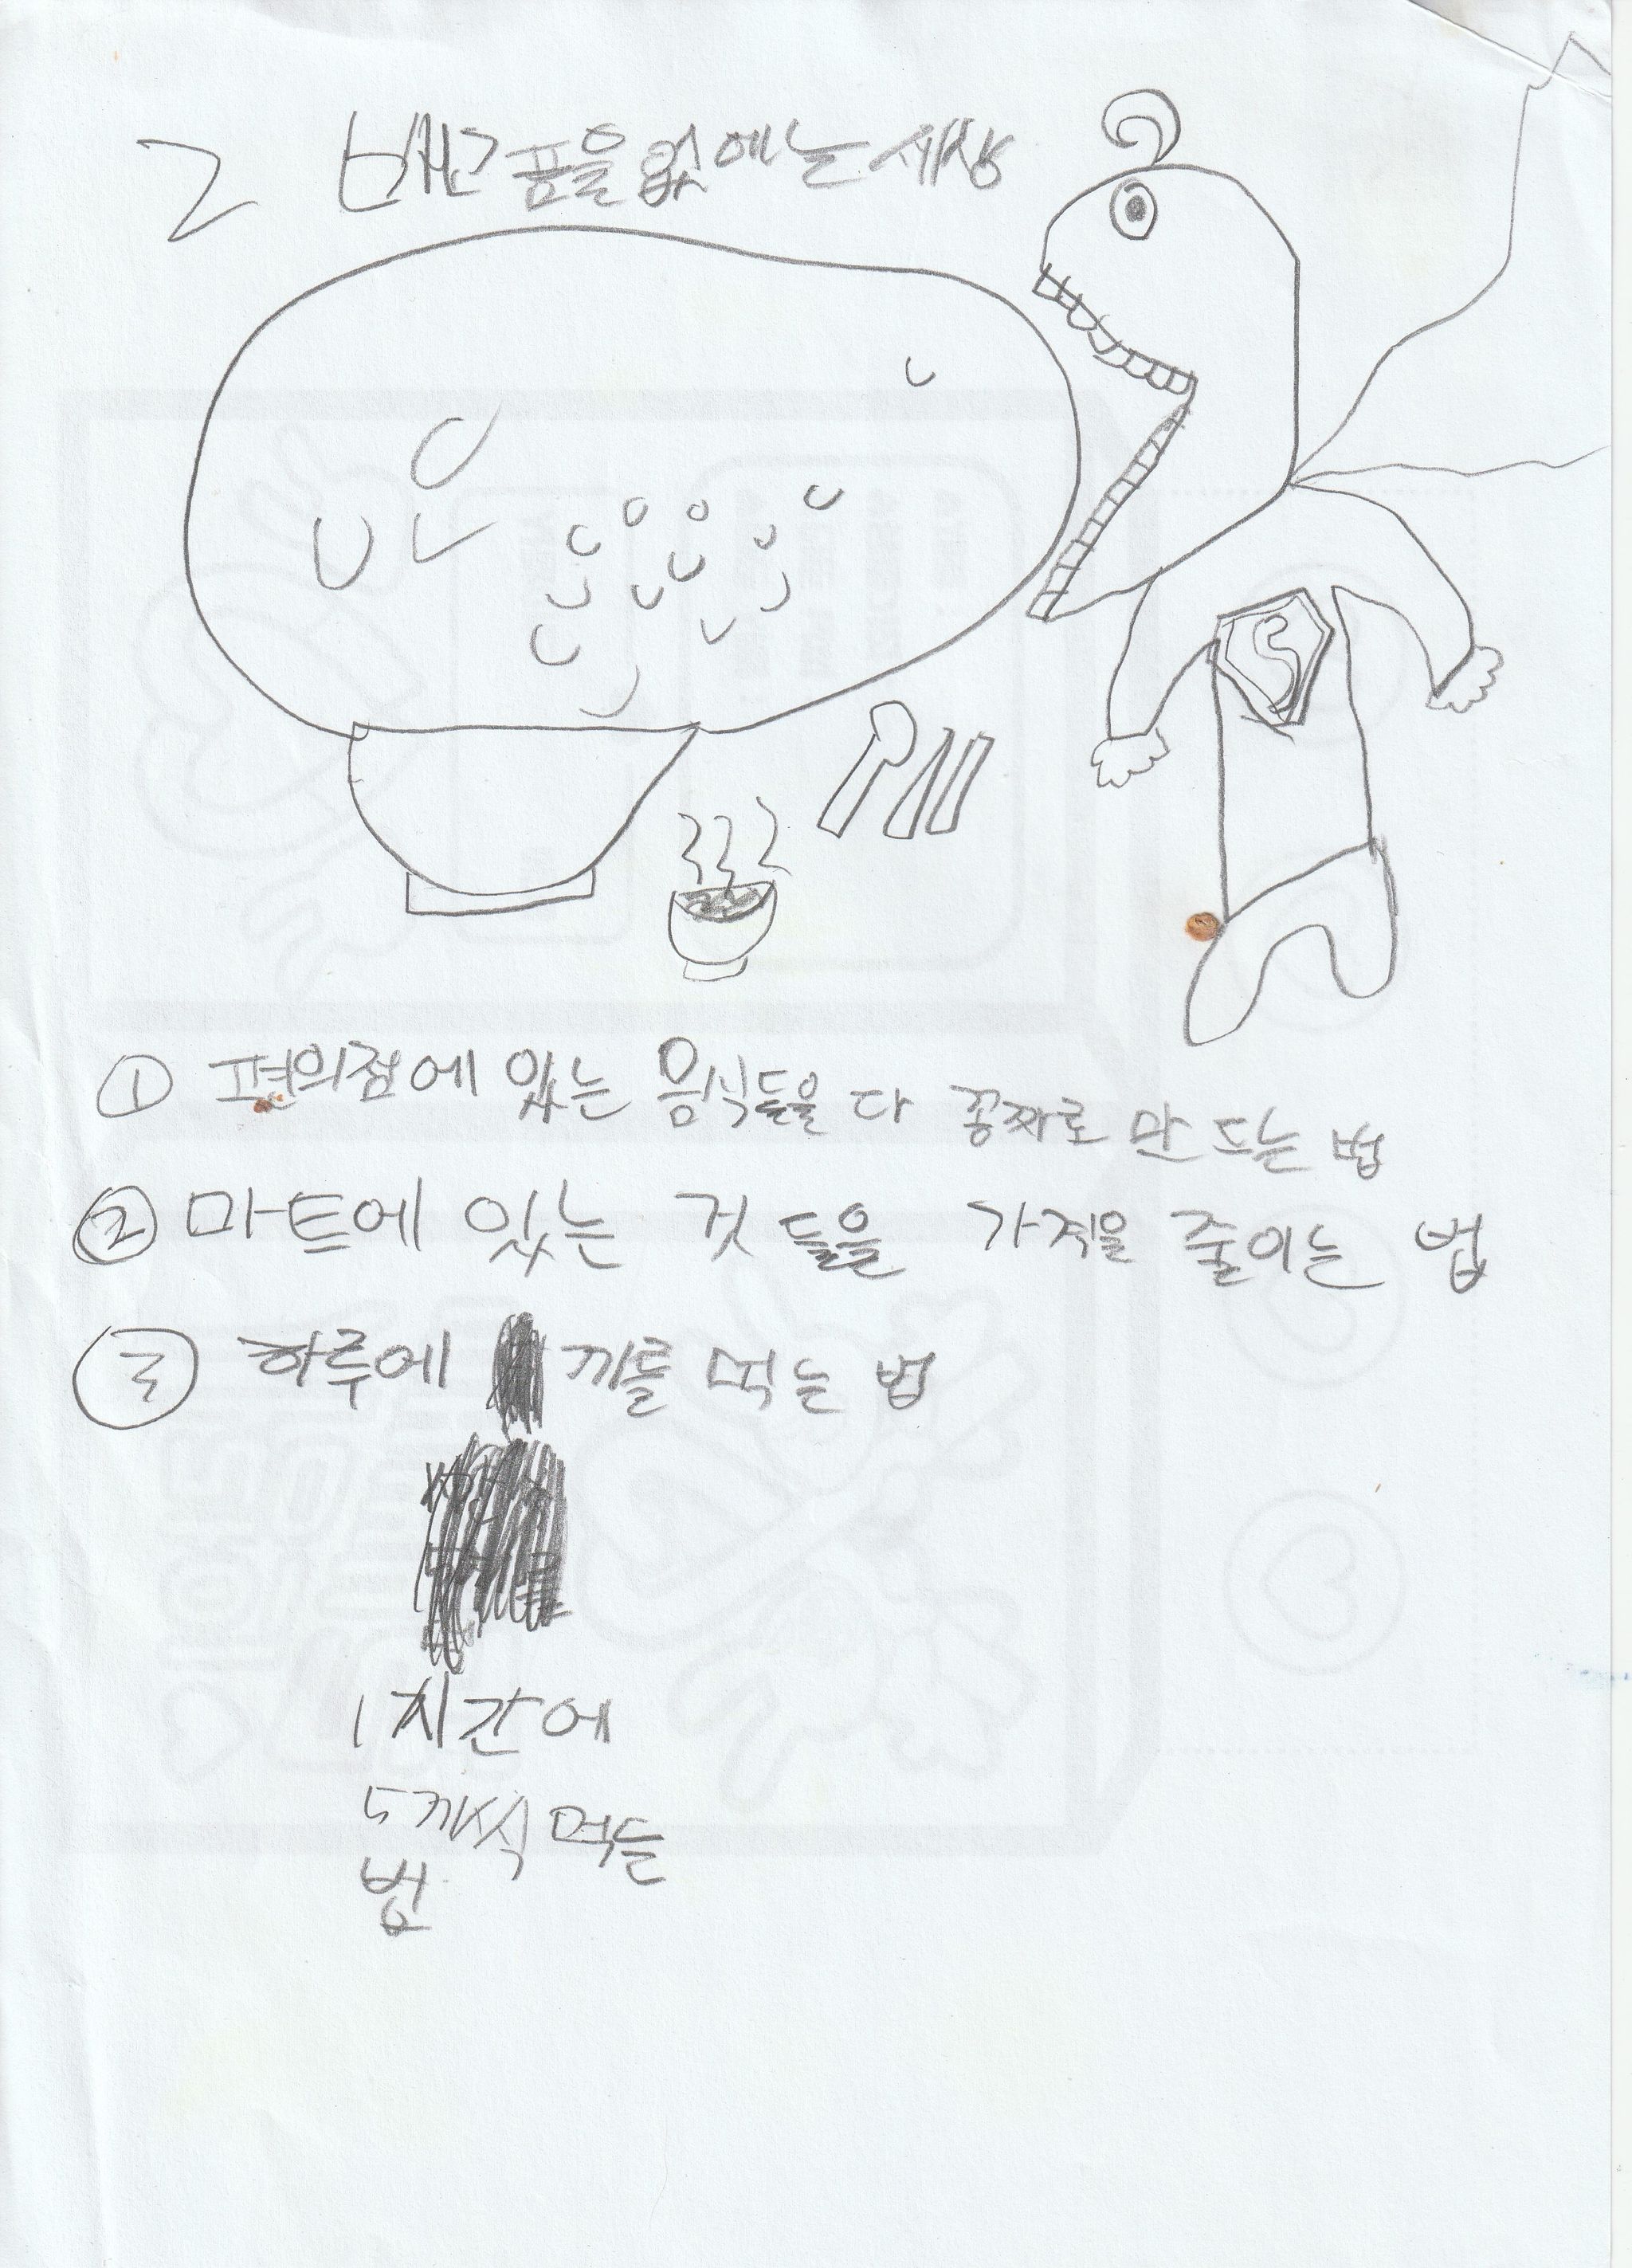 2 배고픔을 없에는 세상
S
① 편의점에 있는 음식들을 다 꽁짜로 만드는 법
② 마트에 있는 것들을 가격을 줄이는 법
③ 하루에 끼를 먹는 법
1시간에
5끼씩 먹는
법